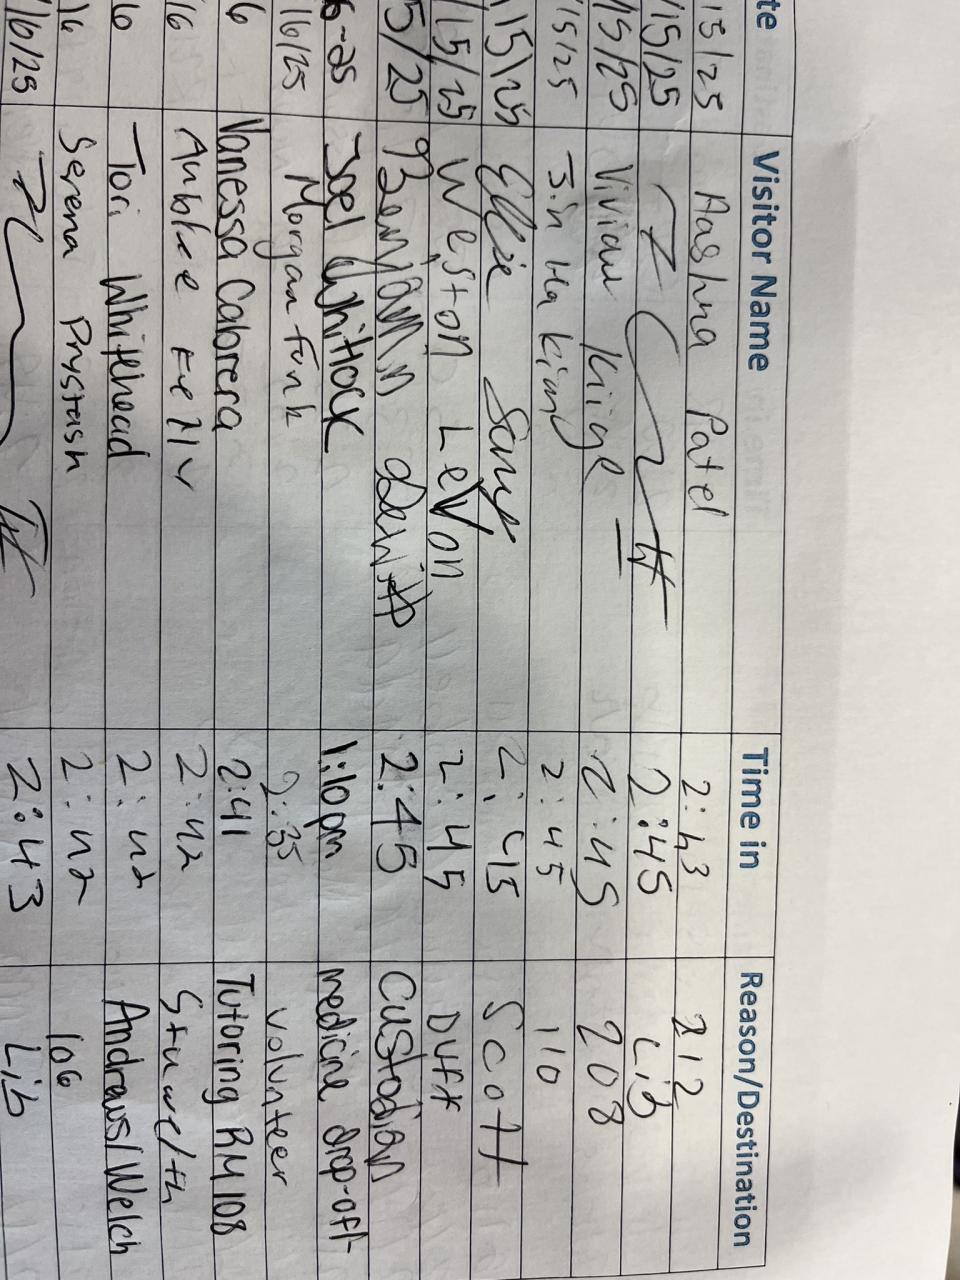 te Visitor Name Time in Reason/Destination
15/25 Aashna Patel 2:43 212
15/25 2:45 Lib
15/25 Vivian 2:45 208
15/25 2:45 110
15/25 Ellie 2:45 Scott
15/25 Weston LeVon 2:45 Duff
5/25 Benjamin Dewitt 2:45 Custodian
6-25 Joel Whitlock 1:10pm medicine drop-off
16/25 Morgan Funk 2:35 volunteer
6 Vanessa Cabrera 2:41 Tutoring RM 108
16 Aubree 2:42
6 Tori Whitehead 2:42 Andraws/Welch
16 Serena Prystash 2:42 106
16/25 2:43 Lib